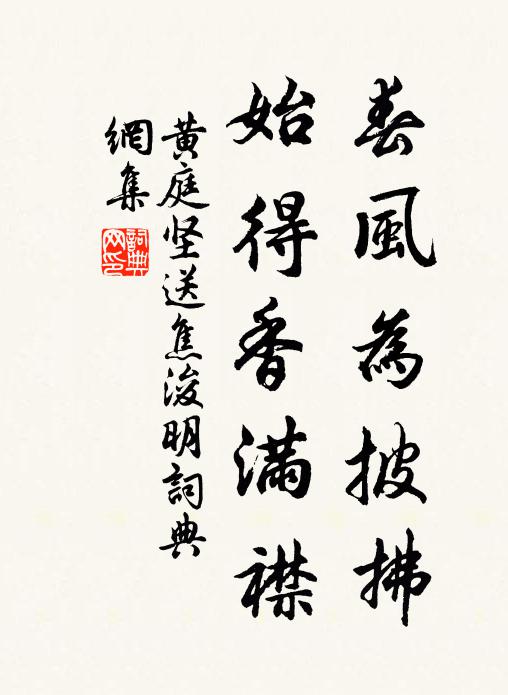 春風為披拂
始得香滿襟
黄庭坚送焦浚明詞典
網集
詞典網印